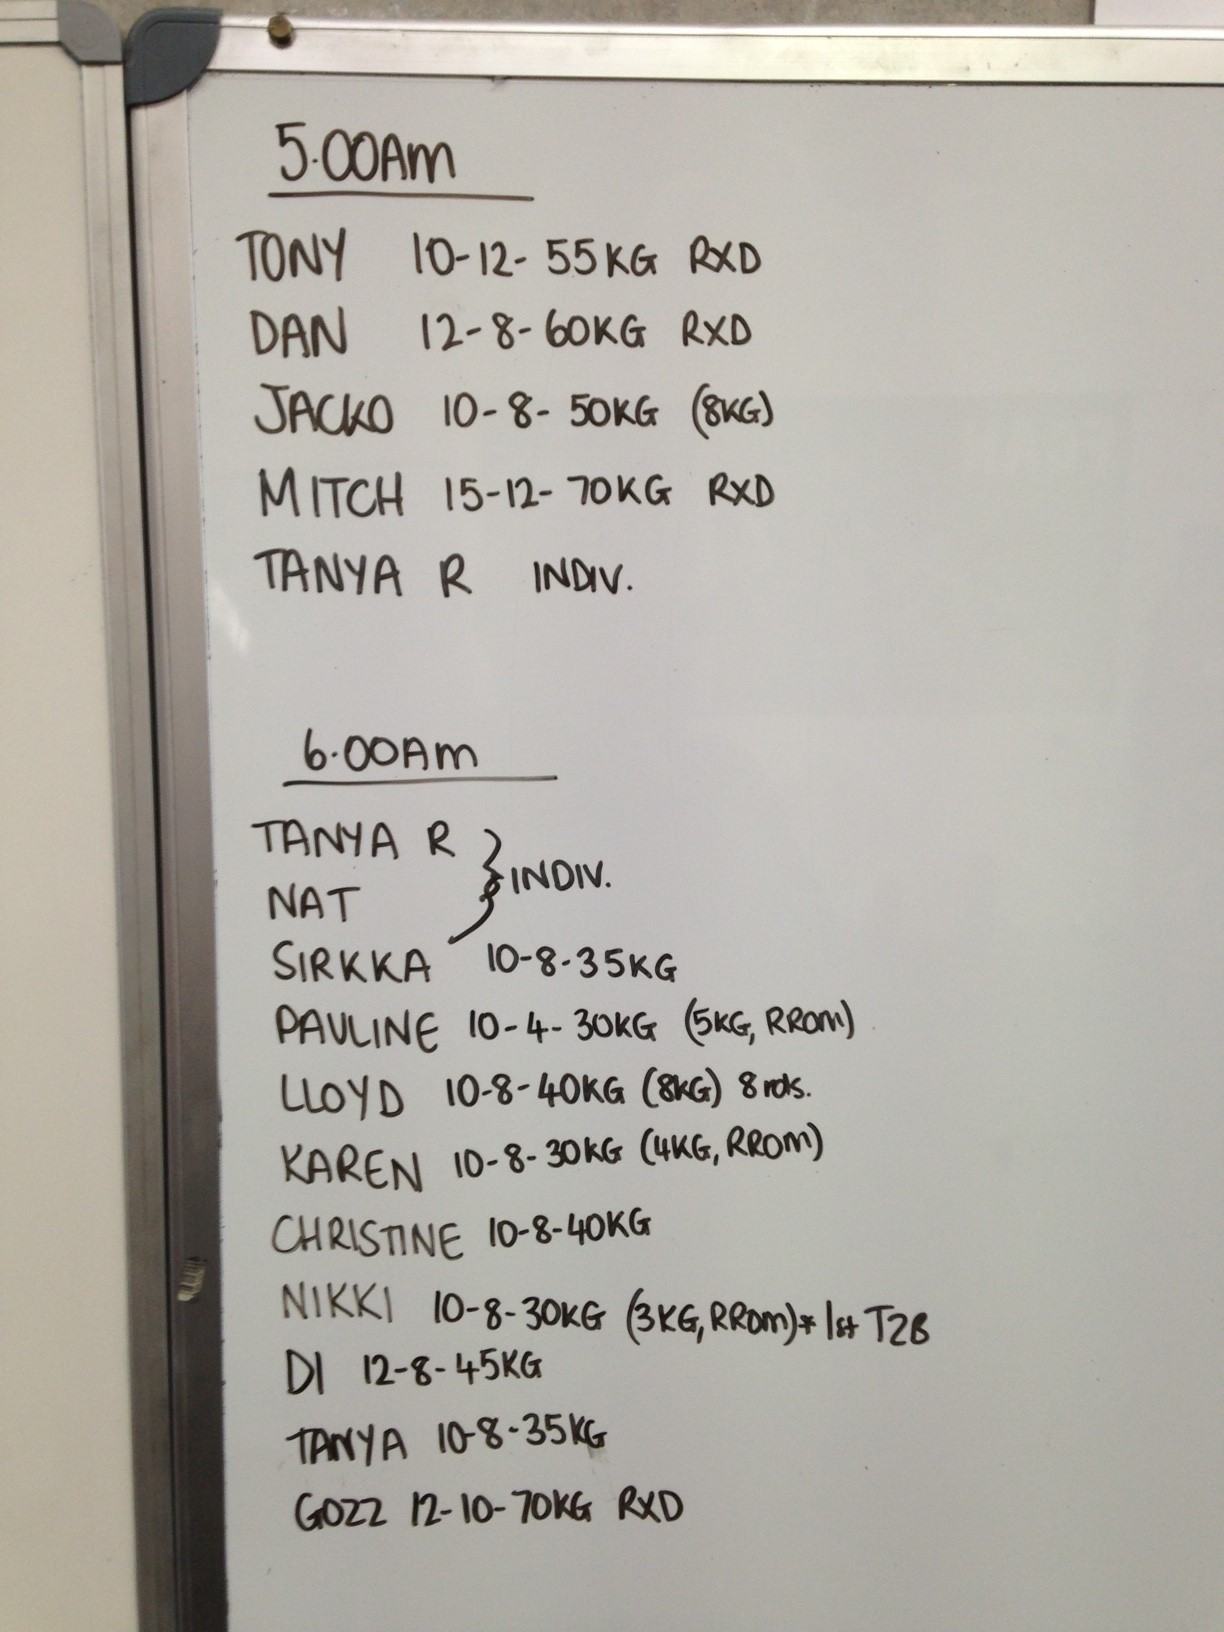 5.00AM
TONY 10-12-55KG RXD
DAN 12-8-60KG RXD
JACKO 10-8-50KG (8KG)
MITCH 15-12-70KG RXD
TANYA R INDIV.
6.00AM
TANYA R
NAT } INDIV.
SIRKKA 10-8-35KG
PAULINE 10-4-30KG (5KG, RROM)
LLOYD 10-8-40KG (8KG) 8 rds.
KAREN 10-8-30KG (4KG, RROM)
CHRISTINE 10-8-40KG
NIKKI 10-8-30KG (3KG, RROM)* 1st T2B
DI 12-8-45KG
TANYA 10-8-35KG
GOZZ 12-10-70KG RXD